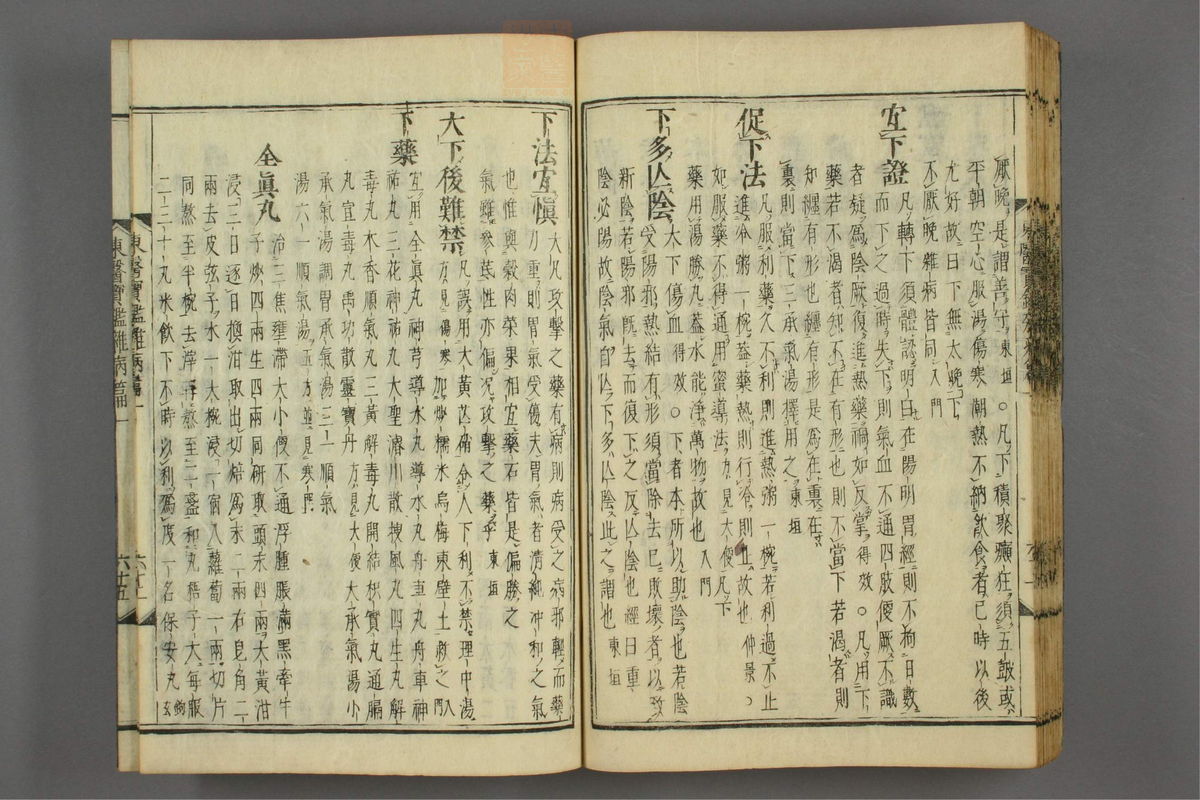 厥晩是謂善守東垣○凡下積聚癲狂須五皷或
平朝空心服湯傷寒潮熱不納飲食者已時以後
尤好故曰下無太晩下
不厭晩雜病皆同入門
宜下證
凡轉下須體認明白在陽明胃經則不拘日數
而下之過時失下則氣血不通四肢便厥不識
者疑爲陰厥復進熱藥禍如反掌得效○凡用下
藥若不渴者知不在有形也則不當下若渴者則
知纒有形也纒有形是爲在裏在
裏則當下三承氣湯擇用之東垣
促下法
凡服利藥久不利則進熱粥一椀若利過不止
進冷粥一椀葢藥熱則行冷則止故也仲景○
如服藥不得通用蜜導法方見大便凡下
藥用湯勝丸葢水能淨萬物故也入門
下多亾陰
大下傷血得效○下者本所以助陰也若陰
受陽邪熱結有形須當除去已敗壞者以致
新陰若陽邪旣去而復下之反亾陰也經曰重
陰必陽故陰氣自亾下多亾陰此之謂也東垣
下法宜愼
大凡攻擊之藥有病則病受之病邪輕而藥
力重則胃氣受傷夫胃氣者淸純冲和之氣
也惟與穀肉菜果相宜藥石皆是偏勝之
氣雖參芪性亦偏况攻擊之藥乎東垣
大下後難禁
凡誤用大黃芒硝令人下利不禁理中湯
方見傷寒加炒糯米烏梅東壁土救之入門
下藥
宜用全眞丸神芎導水丸導水丸舟車丸舟車神
祐丸三花神祐丸大聖濬川散搜風丸四生丸解
毒丸木香順氣丸三黃解毒丸開結枳實丸通膈
丸宣毒丸禹功散靈寶丹方見大便大承氣湯小
承氣湯調胃承氣湯三一順氣
湯六一順氣湯五方並見寒門
全眞丸
治三焦壅滯大小便不通浮腫脹滿黑牽牛
子炒四兩生四兩同硏取頭末四兩大黃泔
浸三日逐日換泔取出切焙爲末二兩右皂角二
兩去皮弦子水一大椀浸一宿入蘿葍一兩切片
同熬至半椀去滓再熬至二盞和丸梧子大每服
二三十丸米飮下不時以利爲度一名保安丸鉤玄
東醫寶鑑雜病篇一
六十五